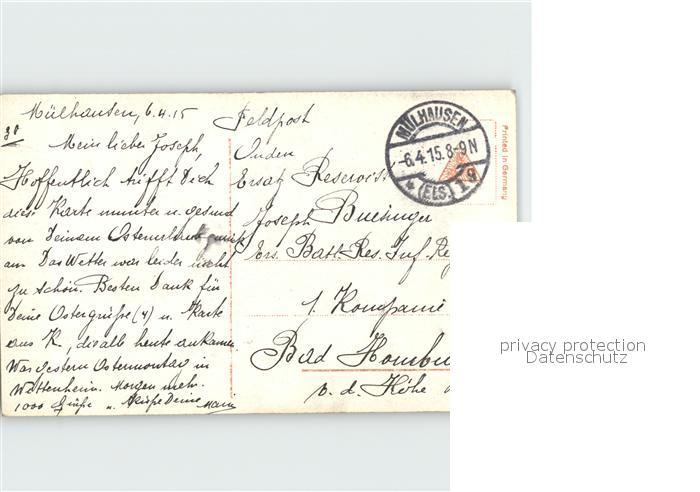 Mülhausen, 6.4.15
30
Mein lieber Joseph,
Hoffentlich trifft Dich
diese Karte munter u. gesund
von Deinem Osterurlaub zurück
an. Das Wetter war leider nicht
zu schön. Besten Dank für
Deine Ostergrüße (4) u. Karte
aus K., die alle heute ankamen.
Was gestern Ostermontag in
Wittenheim. Morgen mehr.
1000 Grüße u. Küsse Deine Marie
Feldpost
An den
Ersatz Reservist
Joseph Buesinger
Ers. Batl. Res. Inf. Reg
1. Kompanie
Bad Hombu
v. d. Höhe
MÜLHAUSEN
-6.4.15.8-9N
* (ELS.) 1g
Printed in Germany
privacy protection
Datenschutz